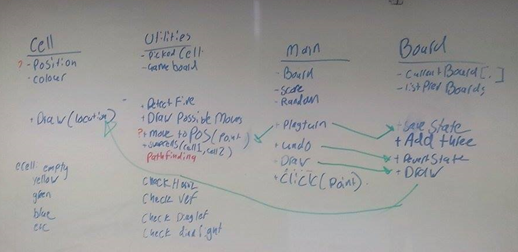 Cell
? - Position
- colour
+ Draw (location)
ecell: empty
yellow
green
blue
etc
Utilities
- Picked Cell
- Gameboard
+ Detect Five
+ Draw Possible Moves
? + move to POS (Point)
(cell1, cell2)
Pathfinding
Check Horz
Check Ver
Check Diagleft
Check
Main
- Board
- score
- Random
+ Playturn
+ undo
+ Draw
+ Click (Point)
Board
- Current Board [,]
- list Prev Boards
+ Save State
+ Add three
+ Revert State
+ Draw